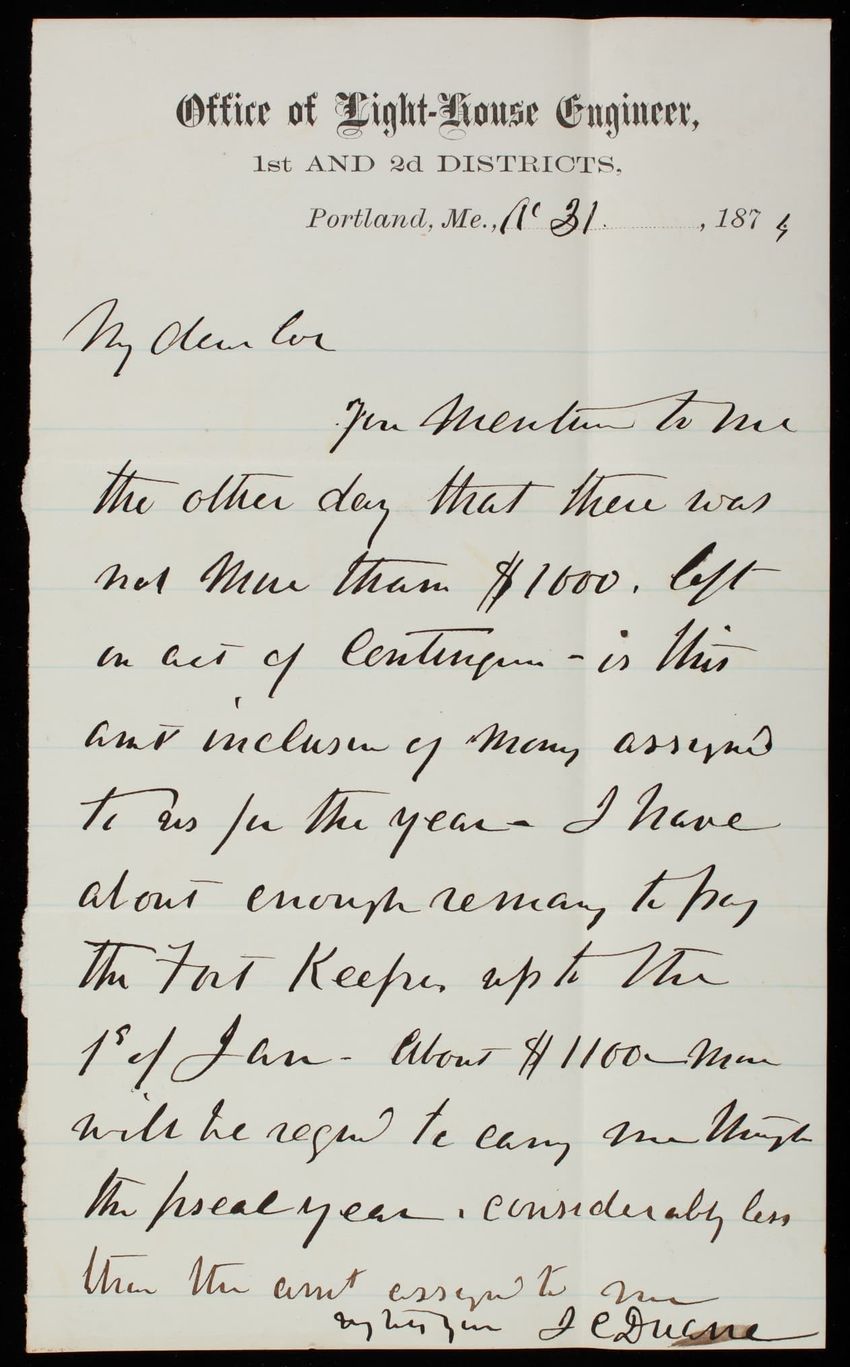 Office of Light-House Engineer,
1st AND 2d DISTRICTS,
Portland, Me., 31. , 1874
My dear Col
You mention to me
the other day that there was
not more than $1000. left
on act of Contingen - is this
amt inclusive of money assigned
to us for the year - I have
about enough remaing to pay
the Fort Keepers up to the
1st of Jan - About $1100 more
will be reqrd to carry me through
the fiscal year. considerably less
than the amt assignd to me
J C Duane